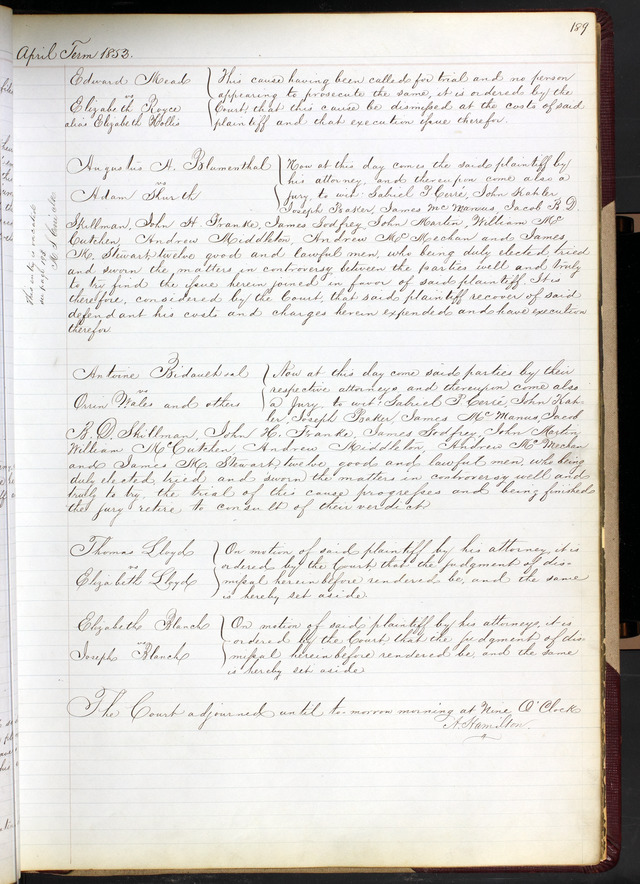 189
April Term 1853.
Edward Mead
vs
Elizabeth Royce
alias Elizabeth Hollis
This cause having been called for trial and no person
appearing to prosecute the same, it is ordered by the
Court, that this cause be dismissed at the costs of said
plaintiff and that execution issue therefor.
Augustus A. Blumenthal
vs
Adam
Now at this day comes the said plaintiff by
his attorney, and thereupon come also a
Jury to wit: Gabriel P Cerré, John Kahler
Joseph Baker, James McManus, Jacob B. D.
Skillman, John H. Franke, James Godfrey, John Martin, William Mc
Cutchen, Andrew Middleton, Andrew McMechan and James
K. Stewart, twelve good and lawful men, who being duly elected, tried
and sworn the matters in controversy between the parties well and truly
to try, find the issue herein joined in favor of said plaintiff. It is
therefore, considered by the Court, that said plaintiff recover of said
defendant his costs and charges herein expended and have execution
therefor
This entry is
on page
Antoine Bidault et al
vs
Orrin Wales and others
Now at this day come said parties by their
respective attorneys and thereupon come also
a Jury, to wit: Gabriel P Cerré John Kah-
ler, Joseph Baker, James McManus, Jacob
B. D. Skillman, John H. Franke, James Godfrey, John Martin,
William McCutchen, Andrew Middleton, Andrew McMechan
and James K. Stewart, twelve good and lawful men, who being
duly elected, tried and sworn the matters in controversy well and
truly to try, the trial of this cause progresses and being finished
the jury retire to consult of their verdict
Thomas Lloyd
vs
Elizabeth Lloyd
On motion of said plaintiff by his attorney, it is
ordered by the Court that the judgment of dis-
missal hereinbefore rendered be, and the same
is hereby set aside
Elizabeth Blanch
vs
Joseph Blanch
On motion of said plaintiff by his attorneys, it is
ordered by the Court that the judgment of dis
missal hereinbefore rendered be, and the same
is hereby set aside
The Court adjourned until to-morrow morning at Nine O'Clock
A. Hamilton.